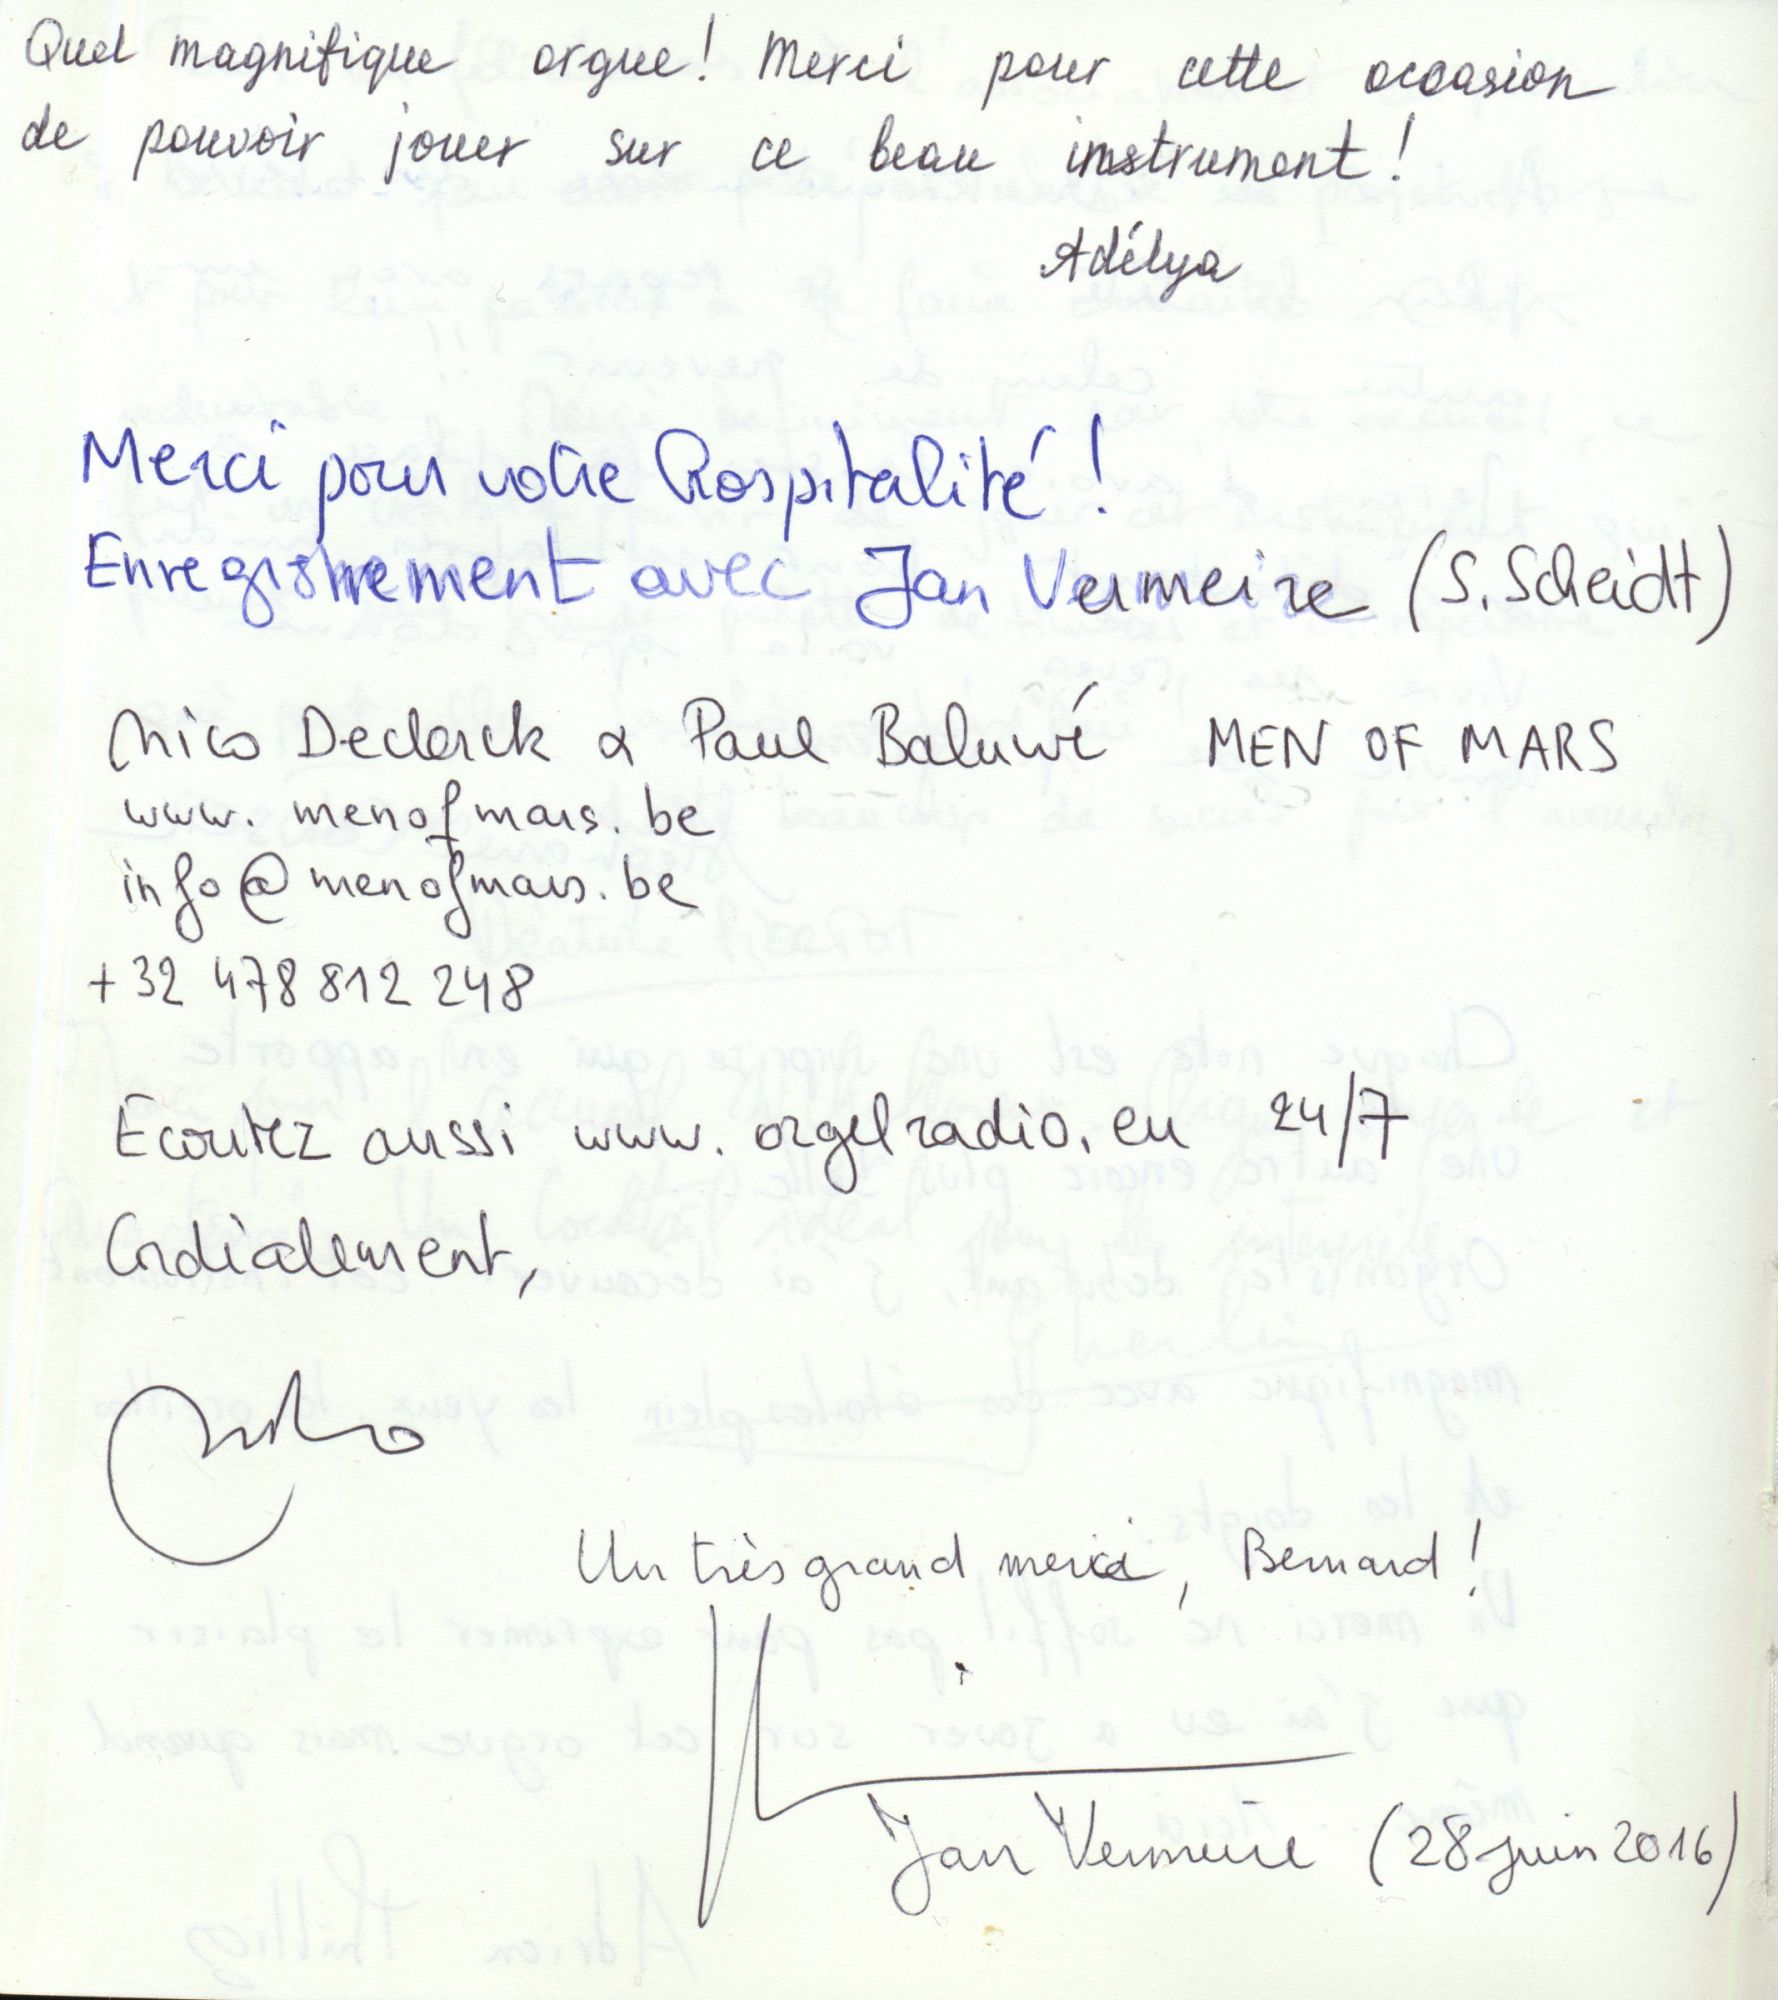 Quel magnifique orgue! Merci pour cette occasion
de pouvoir jouer sur ce beau instrument!
Adélya
Merci pour votre Hospitalité!
Enregistrement avec Jan Vermeire (S. Scheidt)
Nico Declerck & Paul Baluwé MEN OF MARS
www.menofmars.be
info@menofmars.be
+32 478 812 248
Ecoutez aussi www.orgelradio.eu 24/7
Cordialement,
Un très grand merci, Bernard!
Jan Vermeire (28 juin 2016)